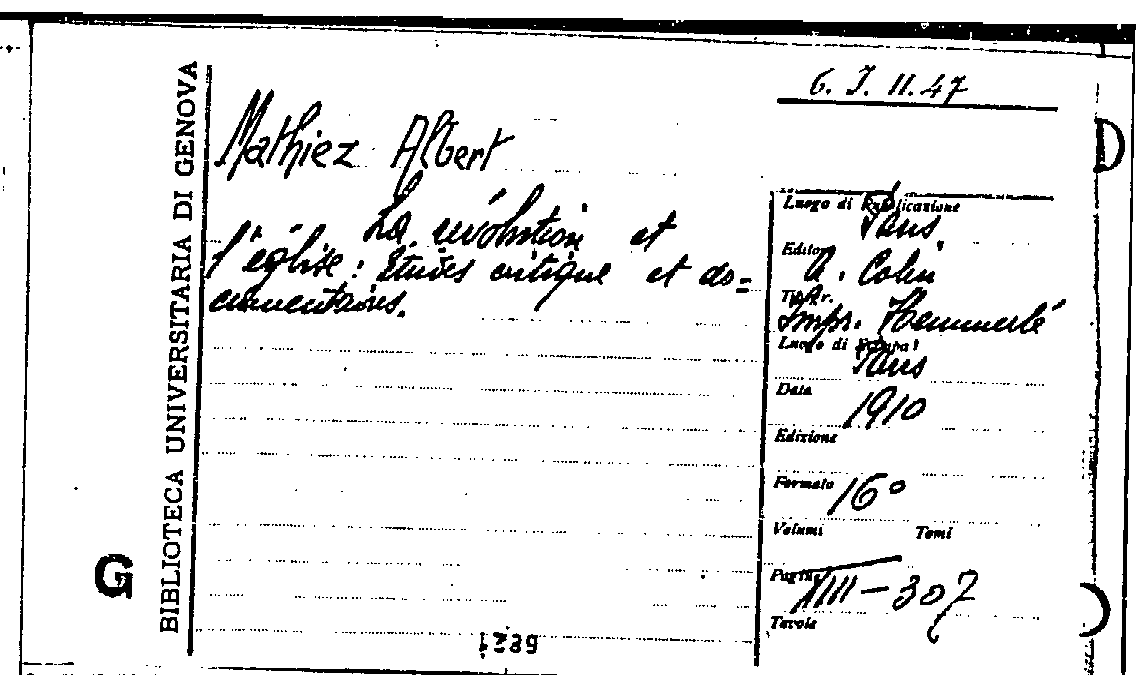 G. J. II. 47
BIBLIOTECA UNIVERSITARIA DI GENOVA
G
Mathiez Albert
La révolution et
l'église: Etudes critique et do=
cumentaires.
Luogo di Pubblicazione
Paris
Editore
A. Colin
Impr. Hemmerlé
Luogo di Stampa
Paris
Data
1910
Edizione
Formato 16°
Volumi Tomi
Pagine
XIII-307
Tavole